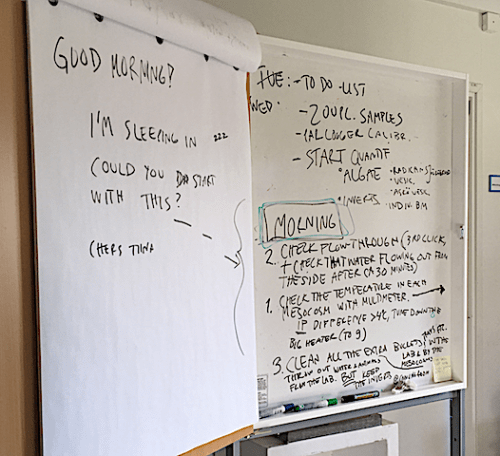 GOOD MORNING!
I'M SLEEPING IN zzz
COULD YOU START
WITH THIS?
CHEERS TIINA
TUE: - TO DO - LIST
WED.
- ZOOPL. SAMPLES
- CALLONGER CALIBR.
- START QUANTF
ALGAE
INVERTS · INDIV. BM
MORNING
2. CHECK FLOW-THROUGH (3RD CLICK,
+ CHECK THAT WATER FLOWING OUT FROM
THE SIDE AFTER CA 30 MINUTES)
1. CHECK THE TEMPERATURE IN EACH
MESOCOSM WITH MULTIMETER.
IF DIFFERENCE >4°C, TUNE DOWN THE
BIG HEATER (TO 9)
3. CLEAN ALL THE EXTRA BUCKETS IN THE
LAB & BY THE
MESOCOSMS
THROW OUT WATER
FROM THE LAB. BUT KEEP